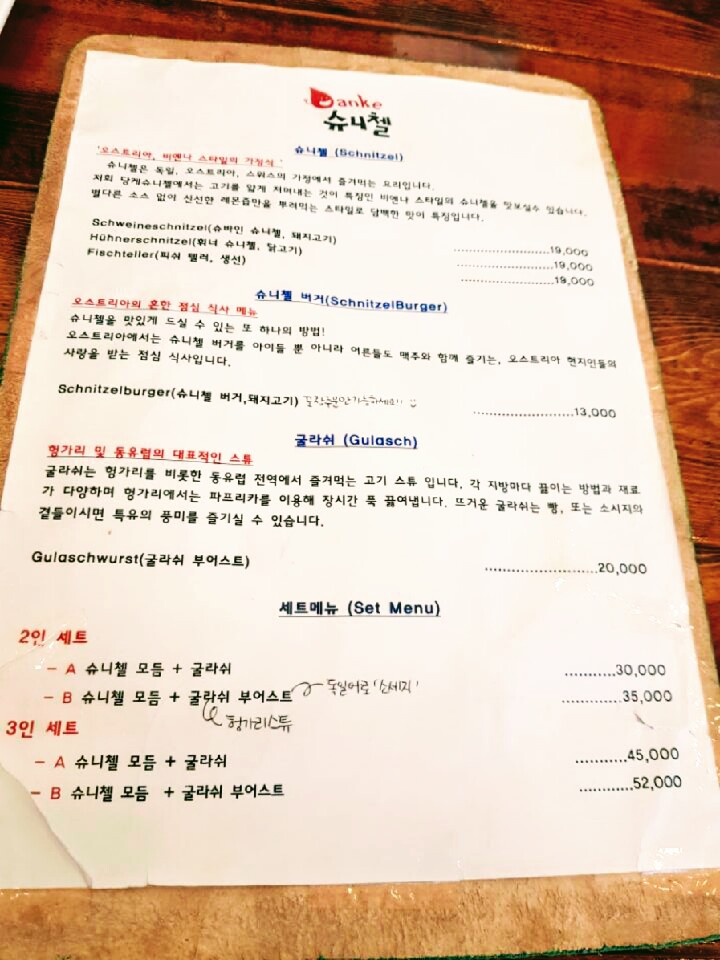 Danke
슈니첼
슈니첼 (Schnitzel)
'오스트리아, 비엔나 스타일의 가정식 '
슈니첼은 독일, 오스트리아, 스위스의 가정에서 즐겨먹는 요리입니다.
저희 당케슈니첼에서는 고기를 얇게 저며내는 것이 특징인 비엔나 스타일의 슈니첼을 맛보실수 있습니다.
별다른 소스 없이 신선한 레몬즙만을 뿌려먹는 스타일로 담백한 맛이 특징입니다.
Schweineschnitzel(슈바인 슈니첼, 돼지고기) ............................19,000
Hühnerschnitzel(휘네 슈니첼, 닭고기) ............................19,000
Fischteller(피쉬 텔러, 생선) ............................19,000
슈니첼 버거(SchnitzelBurger)
오스트리아의 흔한 점심 식사 메뉴
슈니첼을 맛있게 드실 수 있는 또 하나의 방법!
오스트리아에서는 슈니첼 버거를 아이들 뿐 아니라 어른들도 맥주와 함께 즐기는, 오스트리아 현지인들의
사랑을 받는 점심 식사입니다.
Schnitzelburger(슈니첼 버거,돼지고기) ............................13,000
굴라쉬 (Gulasch)
헝가리 및 동유럽의 대표적인 스튜
굴라쉬는 헝가리를 비롯한 동유럽 전역에서 즐겨먹는 고기 스튜 입니다. 각 지방마다 끓이는 방법과 재료
가 다양하며 헝가리에서는 파프리카를 이용해 장시간 푹 끓여냅니다. 뜨거운 굴라쉬는 빵, 또는 소시지와
곁들이시면 특유의 풍미를 즐기실 수 있습니다.
Gulaschwurst(굴라쉬 부어스트) ............................20,000
세트메뉴 (Set Menu)
2인 세트
- A 슈니첼 모듬 + 굴라쉬 ............30,000
- B 슈니첼 모듬 + 굴라쉬 부어스트 독일어로 '소세지' ............35,000
헝가리스튜
3인 세트
- A 슈니첼 모듬 + 굴라쉬 ............45,000
- B 슈니첼 모듬 + 굴라쉬 부어스트 ............52,000